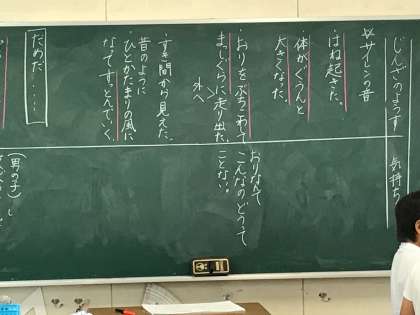 じんざのようす
気持ち
サイレンの音
・はね起きた。
体がぐうんと
大きくなった。
・おりをぶちこわして
まっしぐらに走り出た。
外へ
おりなんて
こんなのどうって
ことない。
・すき間から見えた。
昔のように
・ひとかたまりの風に
なってすっとんでいく。
ためだ....
(男の子)し